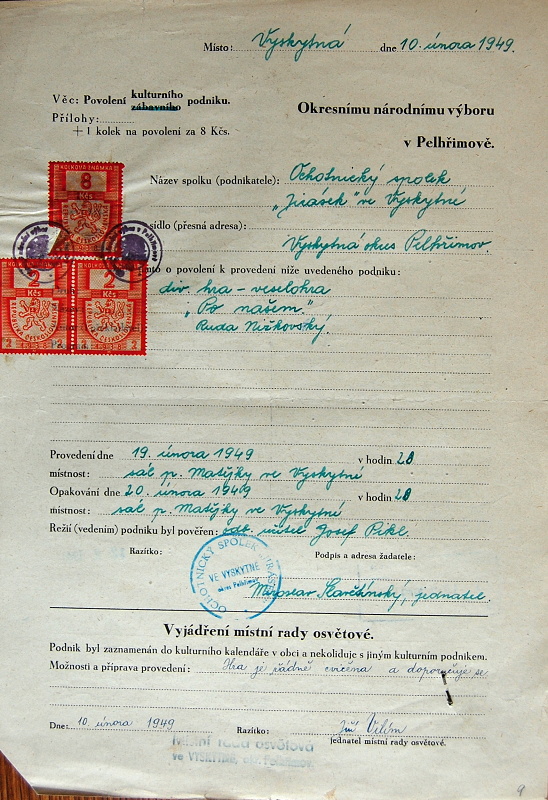 Místo: Vyskytná dne 10. února 1949.
Věc: Povolení kulturního zábavního podniku.
Přílohy:
+ 1 kolek na povolení za 8 Kčs.
Okresnímu národnímu výboru
v Pelhřimově.
KOLKOVÁ ZNÁMKA
8
Kčs
Název spolku (podnikatele): Ochotnický spolek
„Jirásek" ve Vyskytné
sídlo (přesná adresa):
Vyskytná okres Pelhřimov.
o povolení k provedení níže uvedeného podniku:
2 Kčs
2 Kčs
REPUBLIKA ČESKOSLOVENSKÁ
div. hra – veselohra
„Po našem."
Ruda
Provedení dne 19. února 1949 v hodin 20
místnost: sál p. Matějky ve Vyskytné
Opakování dne 20. února 1949 v hodin 20
místnost: sál p. Matějky ve Vyskytné
Režií (vedením) podniku byl pověřen: odb. učitel Josef Pikl.
Razítko:
Podpis a adresa žadatele:
OCHOTNICKÝ SPOLEK JIRÁSEK
VE VYSKYTNÉ
okres Pelhřimov
Miroslav Slavětínský, jednatel
Vyjádření místní rady osvětové.
Podnik byl zaznamenán do kulturního kalendáře v obci a nekoliduje s jiným kulturním podnikem.
Možnosti a příprava provedení: Hra je řádně cvičena a doporučuje se
Dne: 10. února 1949
Razítko:
Jiří Vilím
jednatel místní rady osvětové.
Místní rada osvětová
ve VYSKYTNÉ, okr. Pelhřimov.
9